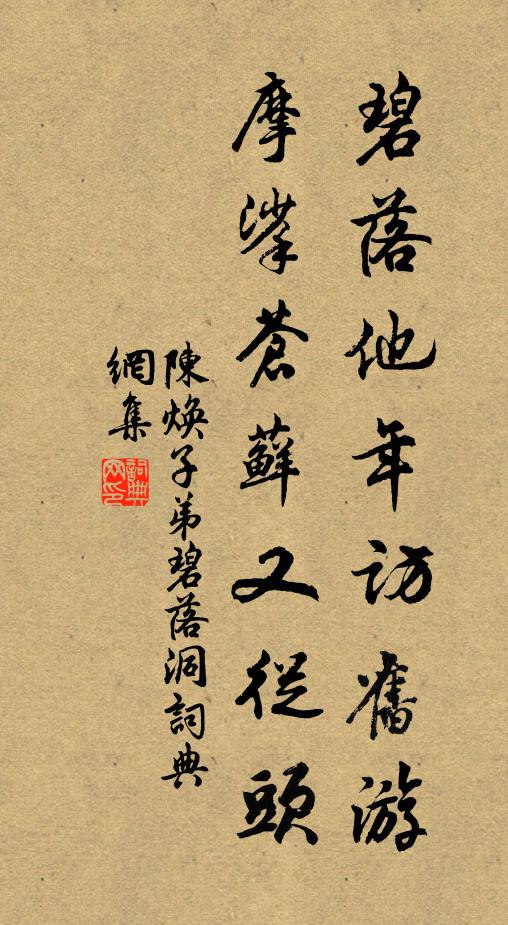 碧落他年訪舊游
摩挲蒼蘚又從頭
陳煥子弟碧落洞詞典
網集
詞典
网印